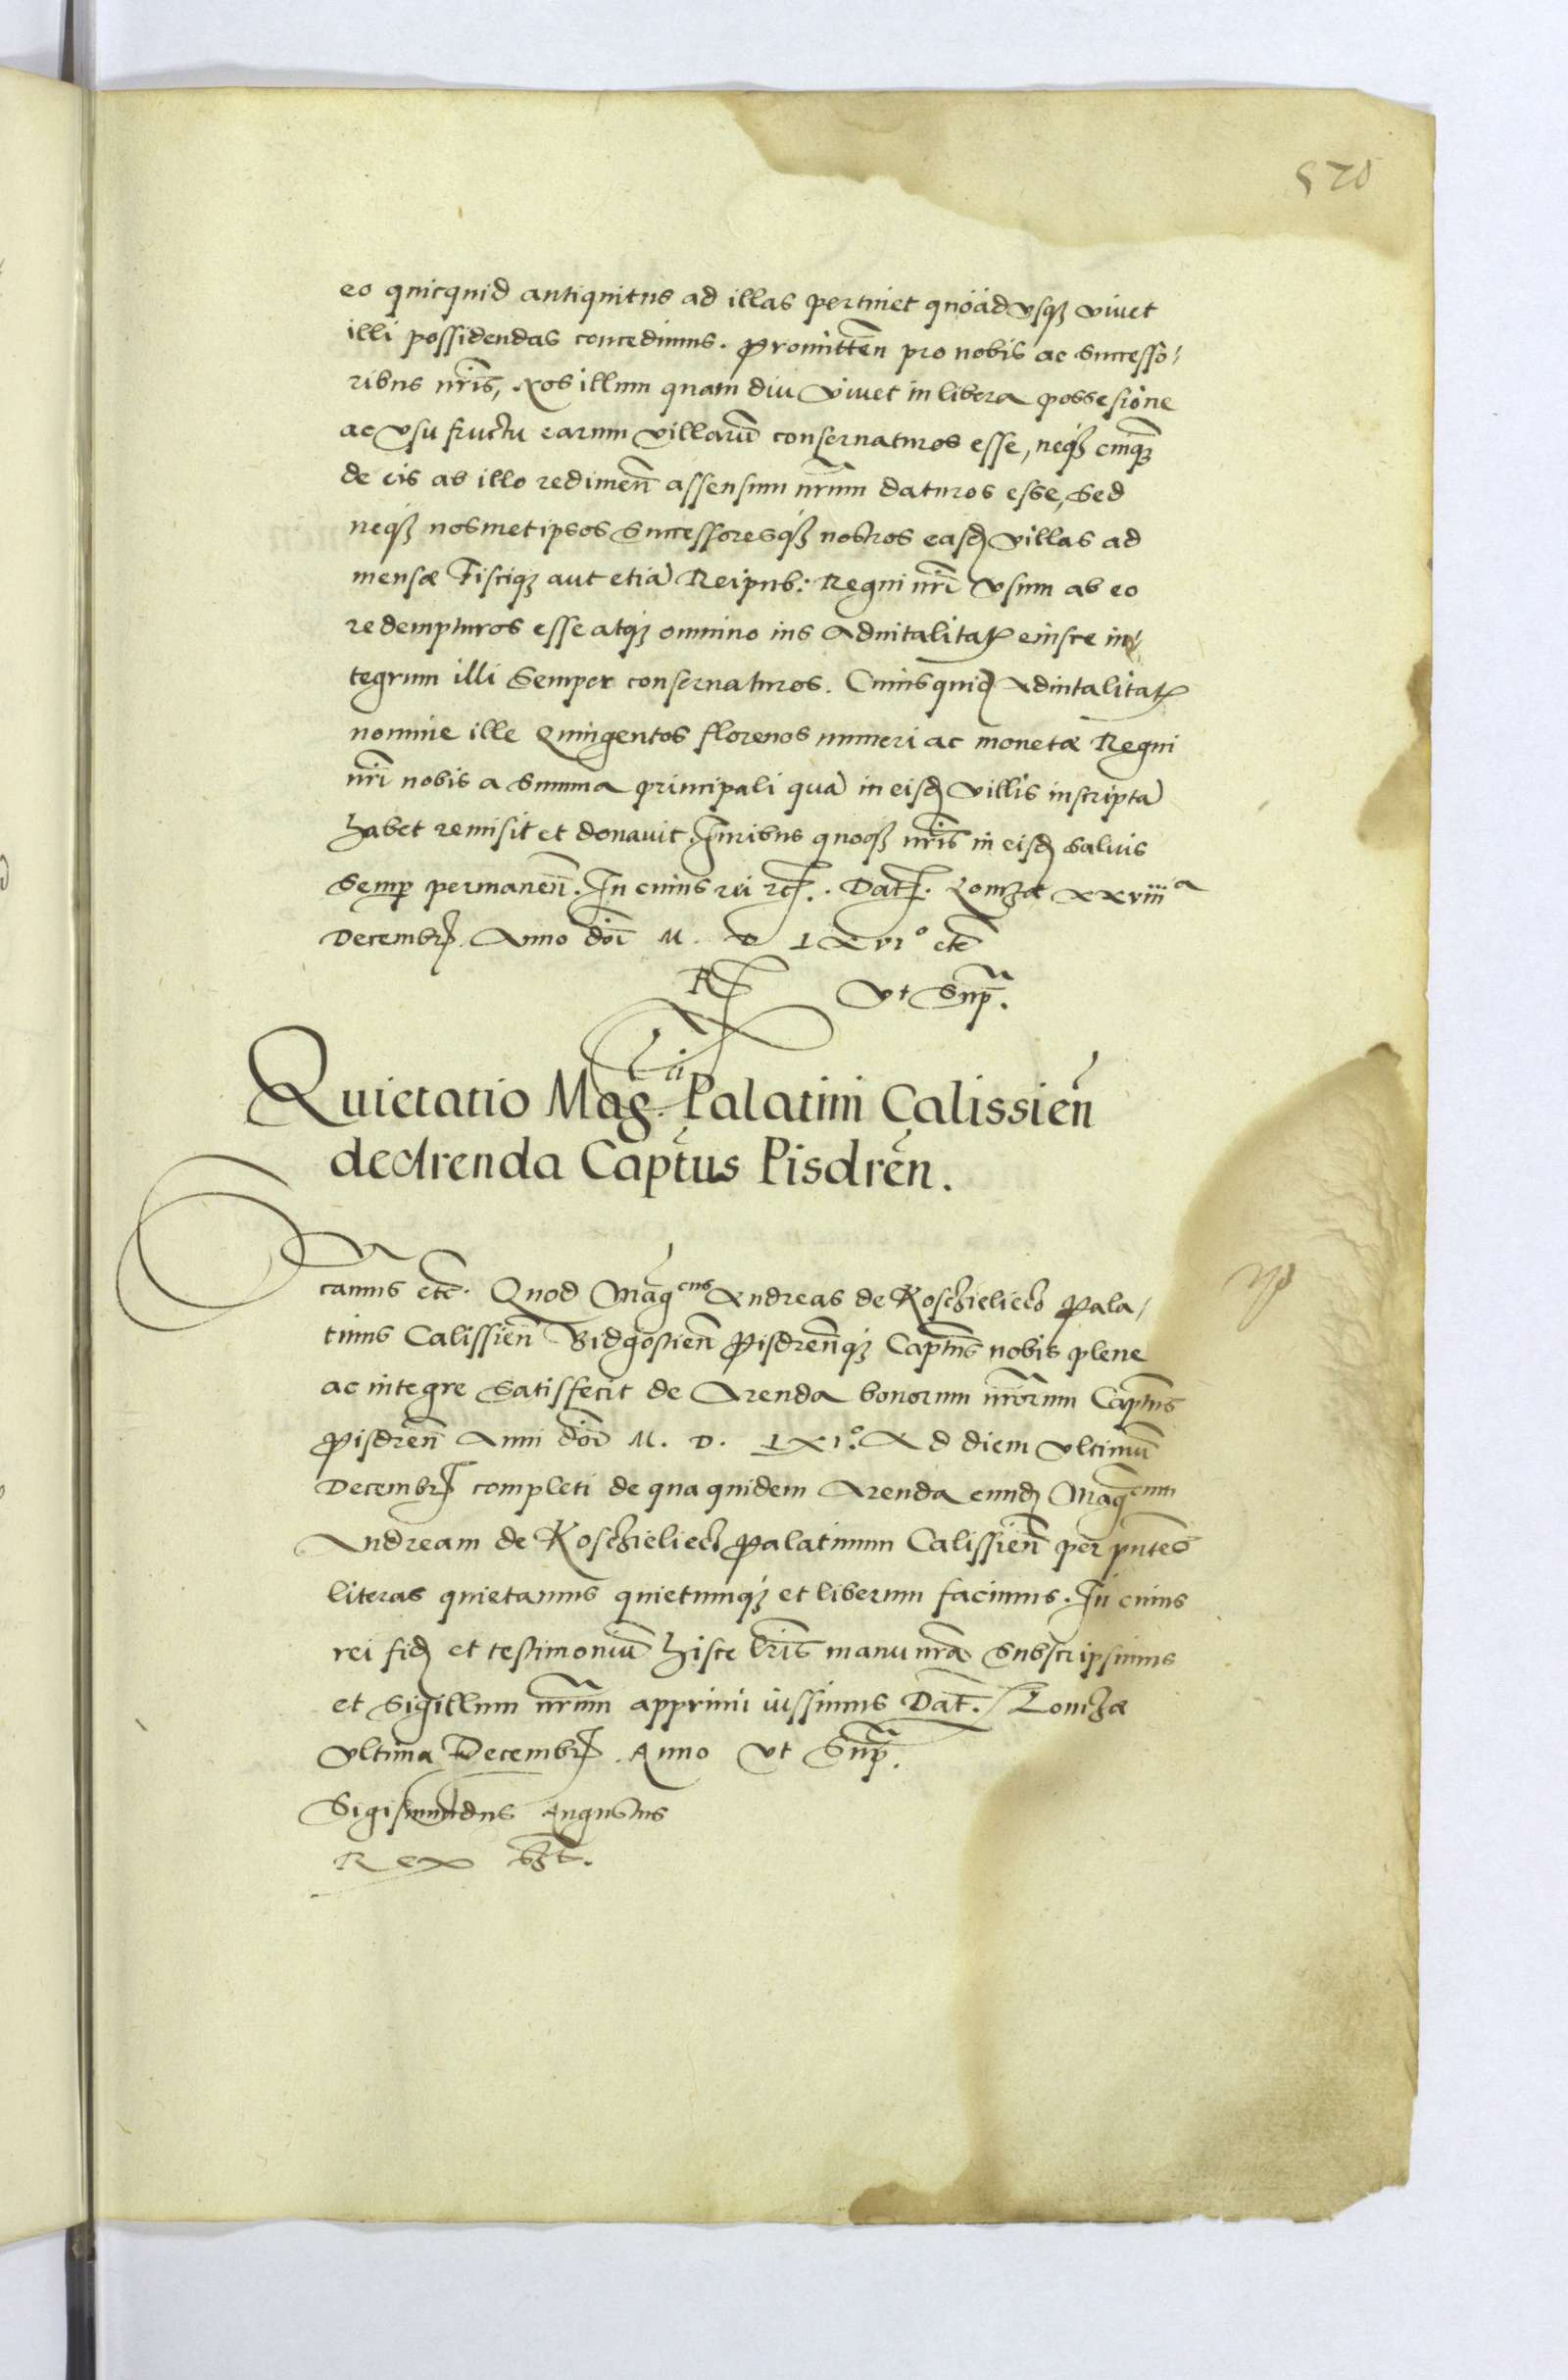 520
eo quicquid antiquitus ad illas pertinet quoad usq3 vivet
illi possidendas concedimus. Promitten̄ pro nobis ac successo-
ribus nr̄is, Nos illum quam diu vivet in libera possesione
ac usu fructu earum villarū conservaturos esse, neq3 cuiq̄3
de eis ab illo redimen̄ assensum nr̄um daturos esse, sed
neq3 nosmetipsos successoresq3 nostros easd villas ad
mensæ Fisciq3 aut etiā Reipub: Regni nr̄i usum ab eo
redempturos esse atq3 omnino ius Advitalitat. eiusce in-
tegrum illi semper conservaturos. Cuiusquid Advitalitat.
nomine ille Quingentos florenos numeri ac monetæ Regni
nr̄i nobis a summa principali quā in eisd villis inscriptā
habet remisit et donavit. Iuribus quoq3 nr̄is in eisd salvis
semp permanen̄. In cuius rei rc. Dat. Lomzæ xxviiiᵃ
Decembr. Anno dōi M. D LXVIº etc̄
R Ut Supᵃ.
Quietatio Mag.ci Palatini Calissien̄
de Arenda Captus Pisdren̄.
camus etc̄. Quod Maḡcus Andreas de Koschieliecz Pala-
tinus Calissien̄ Bidgostien̄ Pisdren̄q3 Capt̄us nobis plene
ac integre satisfecit de Arenda bonorum nr̄orum Capt̄us
Pisdren̄ Anni dōi M. D. LXIº. Ad diem ultimū
Decembr completi de qua quidem Arenda eund Maḡcum
Andream de Koschielecz Palatinum Calissien̄ per pn̄tes
literas quietamus quietumq3 et liberum facimus. In cuius
rei fid et testimoniū hisce lr̄is manu nr̄a subscripsimus
et Sigillum nr̄um apprimi iussimus Dat. Lomzæ
Ultima Decembr. Anno ut Supᵃ.
Sigismundus Augustus
Rex sst.